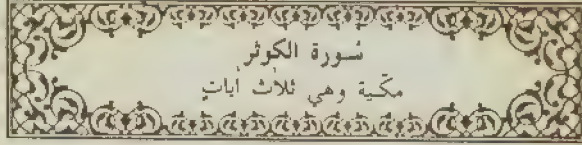 سورة الكوثر
مكّية وهي ثلاث أيات